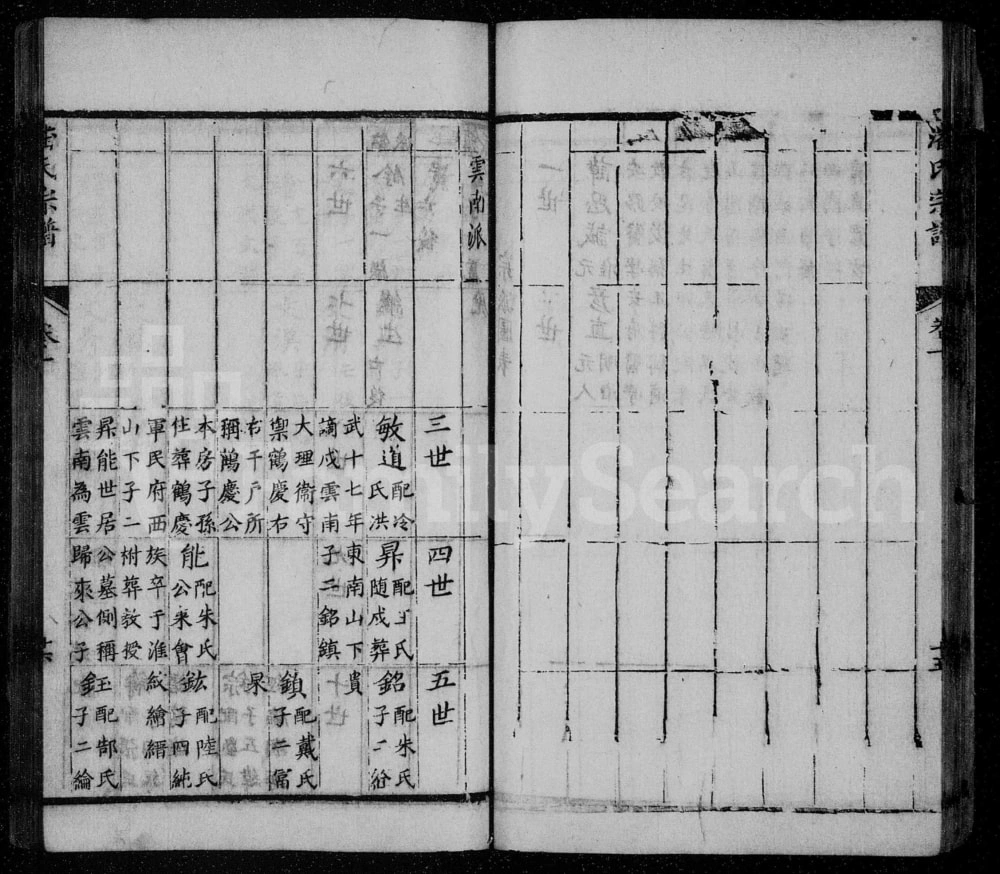 氏宗譜
卷一
十五
雲南派
三世
敏道配冷氏洪
武十七年
謫戍雲南
大理衛守
禦鶴慶右
右千戶所
稱鶴慶公
本房子孫
住葬鶴慶
軍民府西
山下子二
昇能世居
雲南為雲
四世
昇配王氏隨戍葬
東南山下
子二銘鎮
能配朱氏公來會
族卒于淮
柎葬教授
公墓側稱
歸來公子
五世
銘配朱氏子二
貴
鎮配戴氏子二富
杲
鈜配陸氏子四純
紋繪縉
鈺配郜氏子二綸
氏宗譜
卷一
FamilySearch